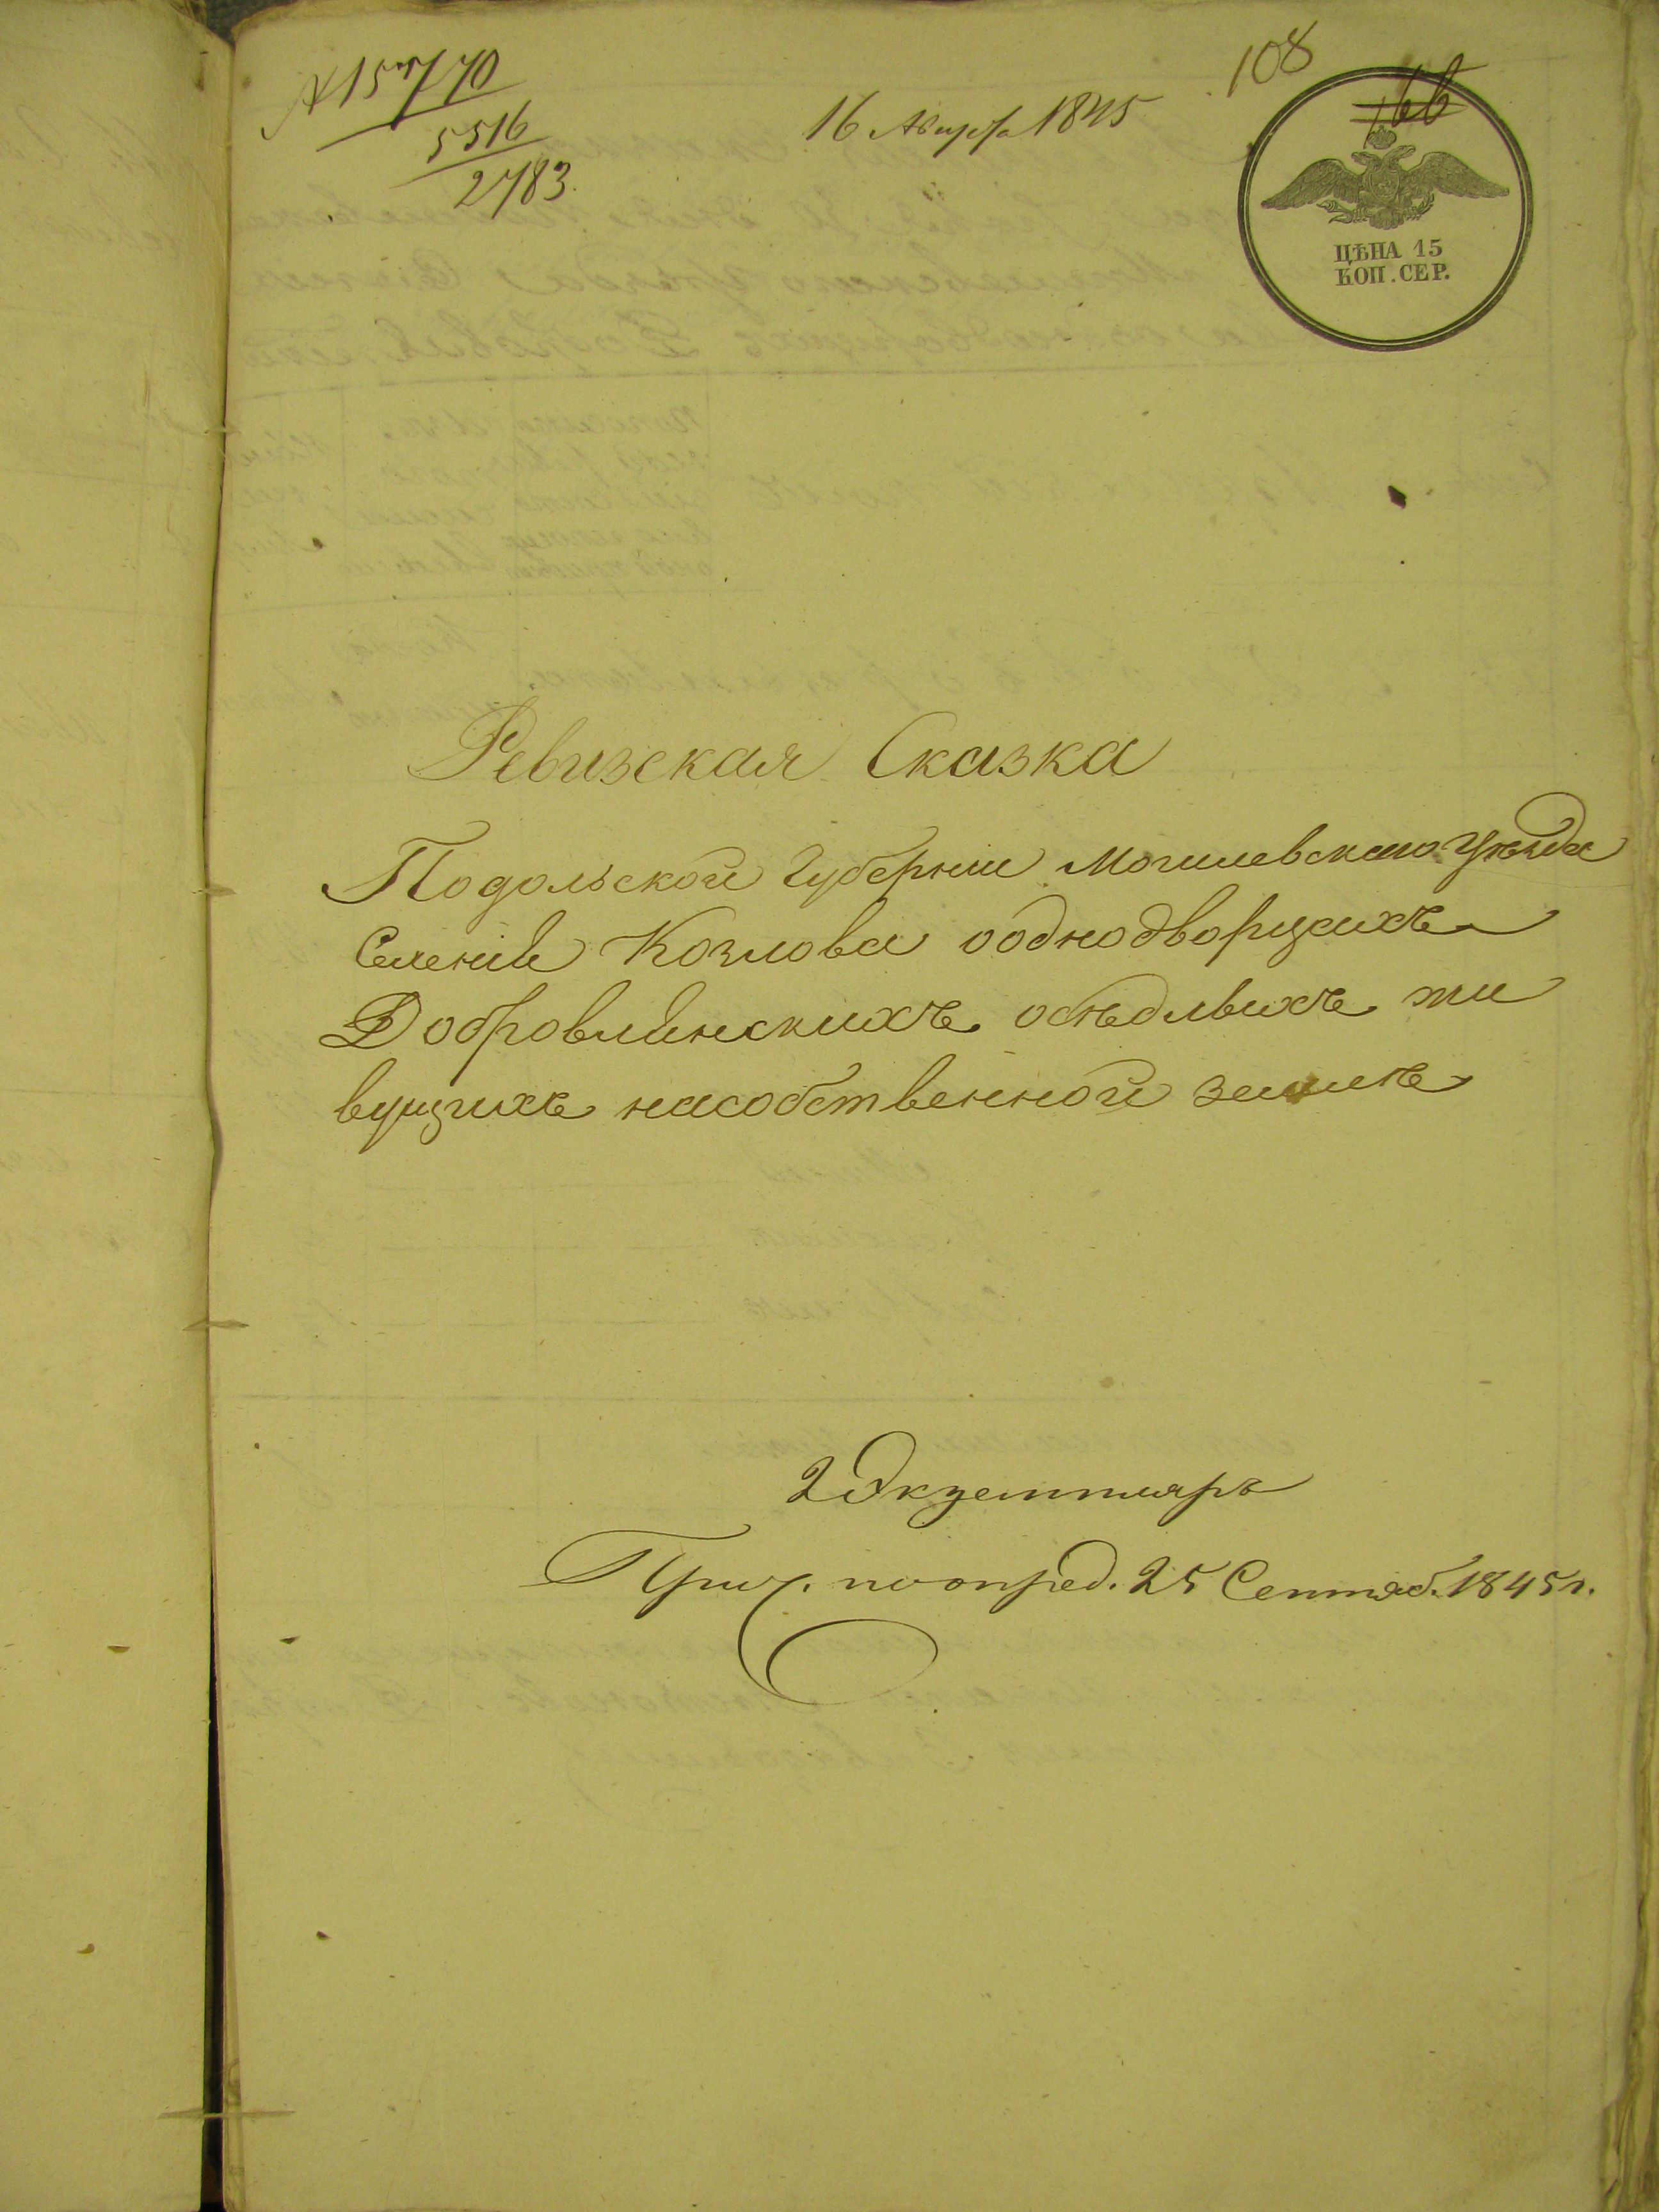 108
16 Августа 1845
5516
2783.
ЦѢНА 15
КОП. СЕР.
Ревизская Сказка
Подольской Губернии Могилевского Уѣзда
Селенія Козлова ооднодворцахъ
Добровлянскихъ осѣдлыхъ жи
вущихъ насобственной землѣ
2 Экземпляръ
поопред. 25 Сентяб. 1845 г.